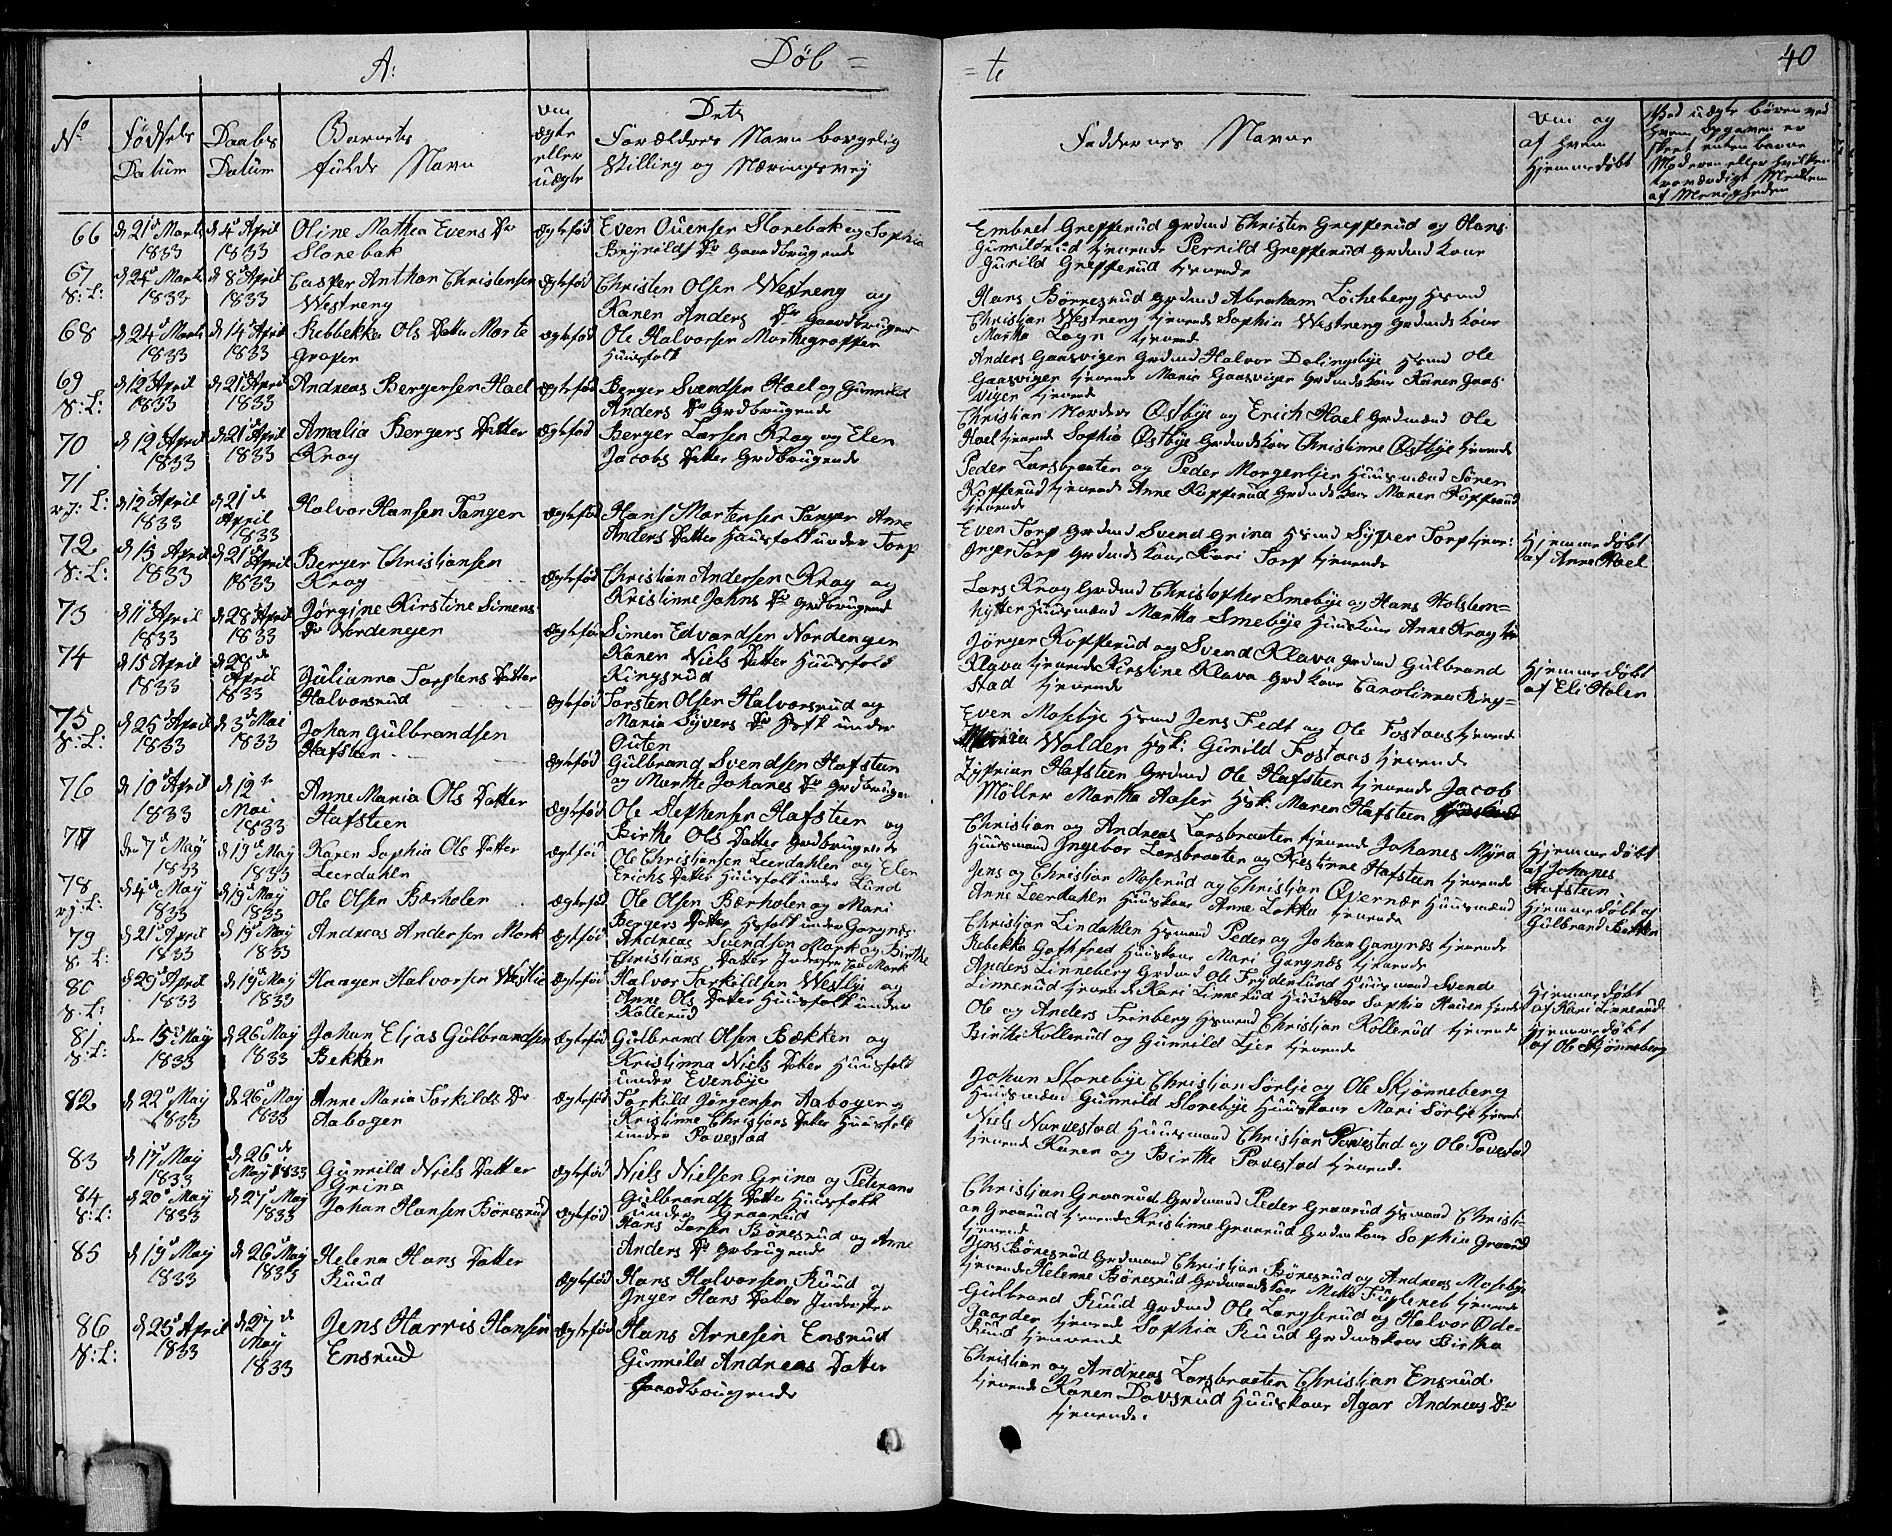 A: Døb =
= te 40
No Fødsels Datum Daabs Datum Barnets fulde Navn om ægte eller uægte Dets Forældres Navn borgelig Stilling og Næringsvej
Faddernes Navne Om og af hvem Hjemmedøbt
66 d 21d Marts 1833 d 4d April 1833 Oline Mathea Evens Dr Slorebak ægtefød Even Ouensen Slorebak og Sophia Brynilds Dr Gaardbrugende
Embret Grepperud Grdmd Christen Grepperud og Hans
Gunnildrud tjenende Pernild Grepperud Grdmd Kone
Gunild Grepperud tjenende
67 S:L: d 24d Marts 1833 d 8d April 1833 Casper Anthon Christensen Westreng ægtefød Christen Olsen Westreng og Karen Anders Dr Gaardbrugene
Hans Børresrud Grdmd Abraham Løcheberg Hsmd
Christian Westreng tjenende Sophia Westreng Grdmds Kone
Martha Logn tjenende
68 d 24d Marts 1833 d 14d April 1833 Rebbekka Ols Datter Morte Groper ægtefød Ole Halvorsen Morthegropper Huusfolk
Anders Gaasviger Grdmd Halvor Dalingebye Hsmd Ole
Gaasviger tjenende Maria Gaasviger Grdmds Kone Karen Gaas-
viger tjenende
69 S:L: d 12d April 1833 d 21d April 1833 Andreas Bergersen Hael ægtefød Berger Svendsen Hael og Gunnild Anders Dr Grdbrugende
Christian Nordere Østbye og Erich Hael Grdmænd Ole
Hael tjenende Sophia Østbye Grdmds Kone Christinne Østbye tjenende
70 d 12d April 1833 d 21d April 1833 Amalia Bergers Datter Krog ægtefød Berger Larsen Krog og Elen Jacobs Datter Grdbrugende
Peder Larsbraaten og Peder Morgenlier Huusmænd Søren
Kopperud tjenende Anne Kopperud Grdmds Kone Maren Kopperud
tjenende
71 L: d 12d April 1833 d 21de April 1833 Halvor Hansen Tangen ægtefød Hans Mortensen Tangen Anne Anders Datter Huusfolk under Torp
Even Torp Grdmd Svend Grina Hsmd Syver Torp tjener
Inger Torp Grdmds Kone Kari Torp tjenende
Hjemmedøbt af Anne Hael
72 S:L: d 13 April 1833 d 21d April 1833 Berger Christiansen Krog ægtefød Christian Andersen Krog og Kristinne Johns Dr Grdbrugende
Lars Krog Grdmd Christopher Smebye og Hans Holstem=
hytten Huusmænd Martha Smebye Huuskone Anne Krog
73 d 11d April 1833 d 28d April 1833 Jørgine Kirstine Simens Dr Nordengen ægtefø Simen Edvardsen Nordengen Karen Niels Datter Huusfolk Ringsrud
Jørgen Kopperud og Svend Klava Grdmd Gulbrand
Klava tjenende Kirstine Klava Grd Kone Carolinna Ring=
stad tjenende
74 d 15 April 1833 d 28de April 1833 Julianna Torstens Datter Halvorsrud ægtefød Torsten Olsen Halvorsrud og Maria Syvers Dr Hsfk under Outen
Even Mosebye Hsmd Jens Fedt og Ole Fostans tjenende
Maria Wolder Hsk: Gunild Fostans tjenende
Hjemmedøbt af Eli Holen
75 S:L: d 25d April 1833 d 3d Mai 1833 Johan Gulbrandsen Hafsteen ægtefød Gulbrand Svendsen Hafsteen og Marthe Johanes Dr Grdbrugen
Zyprian Hafsteen Grdmd Ole Hafsteen tjenende Jacob
Møller Martha Aaser Hsk: Maren Hafsteen
76 d 10d April 1833 d 12te Mai 1833 Anne Maria Ols Datter Hafsteen ægtefød Ole Stephensen Hafsteen og Birthe Ols Datter Grdbrugende
Christian og Andreas Larsbraaten tjenende Johanes Myra
Huusmand Ingebor Larsbraaten og Kestinne Hafsteen tjenende
77 den 7d May 1833 d 19d May 1833 Karen Sophia Ols Datter Leerdahlen ægtefød Ole Christiansen Leerdahlen og Elen Erichs Datter Huusfolk under Lund
Jens og Christian Moserud og Christian Øiernær Huusmænd
Anne Leerdahlen Huuskone Anne Løkka tjenende
Hjemmedøbt af Johanes Hafsteen
78 L: d 4de May 1833 d 19d May 1833 Ole Olsen Bærholen ægtefød Ole Olsen Bærholen og Mari Bergers Datter Hsfolk under Gargnæs
Christian Lindahlen Hsmand Peder og Johan Gangnæs tjenende
Rebekka Gothfred Huuskone Mari Gargnæs tjenende
Hjemmedøbt af Gulbrand Bekken
79 S:L: d 21d April 1833 d 19d May 1833 Andreas Andersen Mork ægtefød Andreas Svendsen Mork og Birthe Christians Datter Inderster paa Mork
Anders Linneberg Grdmd Ole Frydenlund Huusmand Svend
Linnerud tjenende Kari Linnerud Huuskone Sophia Hauen
80 S:L: d 29d April 1833 d 19de May 1833 Haagen Halvorsen Westbie ægtefød Halvor Torkildsen Westbye og Anne Ols Datter Huusfolk under Kollerud
Ole og Anders Trønberg Hsmænd Christian Kollerud tjenende
Birthe Kollerud og Gunnild Lier tjenende
Hjemmedøbt af Kari Linnerud
81 S:L: den 15d May 1833 d 26d May 1833 Johan Elias Gulbrandsen Bekken ægtefød Gulbrand Olsen Bækken og Kristinna Niels Datter Huusfolk under Evenbye
Johan Slorebye Christian Sørlje og Ole Skjønneberg
Huusmænd Gunnild Slorebye Huuskone Mari Sørlje tjenend
Hjemmedøbt af Ole Skjønneberg
82 d 22d May 1833 d 26d May 1833 Anne Maria Torkilds Dr Aabogen ægtefød Torkild Jørgensen Aabogen og Kristinne Christians Datter Huusfolk under Povestad
Niels Norvestad Huusmand Christian Povestad og Ole Povestad
tjenende Karen og Birthe Povestad tjenende.
83 d 17d May 1833 d 26de May 1833 Gunnild Niels Datter Grina ægtefød Niels Nielsen Grina og Peterane Gulbrands Datter Huusfolk under Graarud
Christian Graarud Grdmand Peder Graarud Hsmand Christi=
an Graarud tjenende Kristinne Graarud Grdmkone Sophia Graarud
tjenende
84 S:L: d 20d May 1833 d 27d May 1833 Johan Hansen Børesrud ægtefød Hans Larsen Børesrud og Anne Anders Dr Grbrugende
Jens Børesrud Grdmand Christian Børesrud og Andreas Mosebye
tjenende Helenne Børesrud Grdmandskone Mette Fugleneb tjenende
85 d 19d May 1833 d 26d May 1833 Helena Hans Datter Ruud ægtefød Hans Halvorsen Ruud og Inger Hans Datter Inderster
Gulbrand Ruud Grdmd Ole Langserud og Halvor Øde=
gaarden tjenende Sophia Ruud Grdmdskone Birtha
Ruud tjenende
86 S:L: d 25d April 1833 d 27de May 1833 Jens Harris Hansen Ensrud ægtefød Hans Arnesen Ensrud Gunnild Andreas Datter Gaardbrugende
Christian og Andreas Larsbraaten Christian Ensrud
tjenende Karen Davsrud Huuskone Agar Andreas Dr
tjenende.